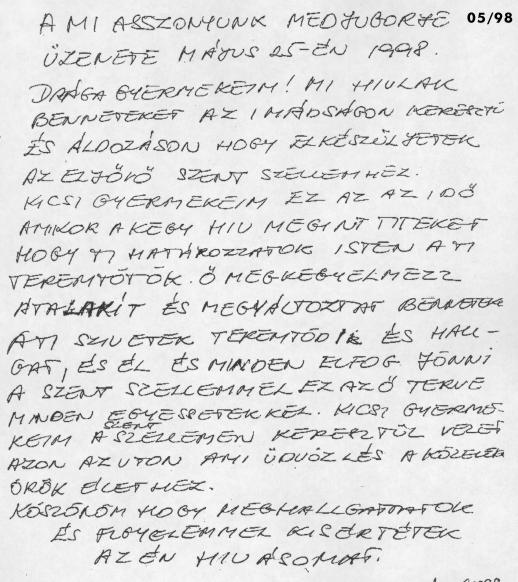 A MI ASSZONYUNK MEDJUGORJE 05/98
ÜZENETE MÁJUS 25-ÉN 1998.
DRÁGA GYERMEKEIM! MI HIVLAK
BENNETEKET AZ IMÁDSÁGON KERESZTÜ
ÉS ÁLDOZÁSON HOGY ELKÉSZÜLJETEK
AZ ELJÖVŐ SZENT SZELLEMHEZ.
KICSI GYERMEKEIM EZ AZ AZ IDŐ
AMIKOR A KEGY HIV MEGINT TITEKET
HOGY TI HATÁROZZATOK ISTEN A TI
TEREMTŐTÖK. Ő MEGKEGYELMEZZ
ÁTALAKÍT ÉS MEGVÁLTOZTAT BENNETEK
A TI SZIVETEK TEREMTŐD ÉS HALL-
GAT, ÉS ÉL ÉS MINDEN ELFOG JÖNNI
A SZENT SZELLEMMEL EZ AZ Ő TERVE
MINDEN EGYESSETEKKEL. KICSI GYERME-
KEIM A SZENT SZELLEMEN KERESZTÜL VEZET
AZON AZ UTON AMI ÜDVÖZLÉS A KÖZELEB
ÖRÖK ÉLETHEZ.
KÖSZÖNÖM HOGY MEGHALLGATTATOK
ÉS FIGYELEMMEL KISÉRTÉTEK
AZ ÉN HIVÁSOMAT.